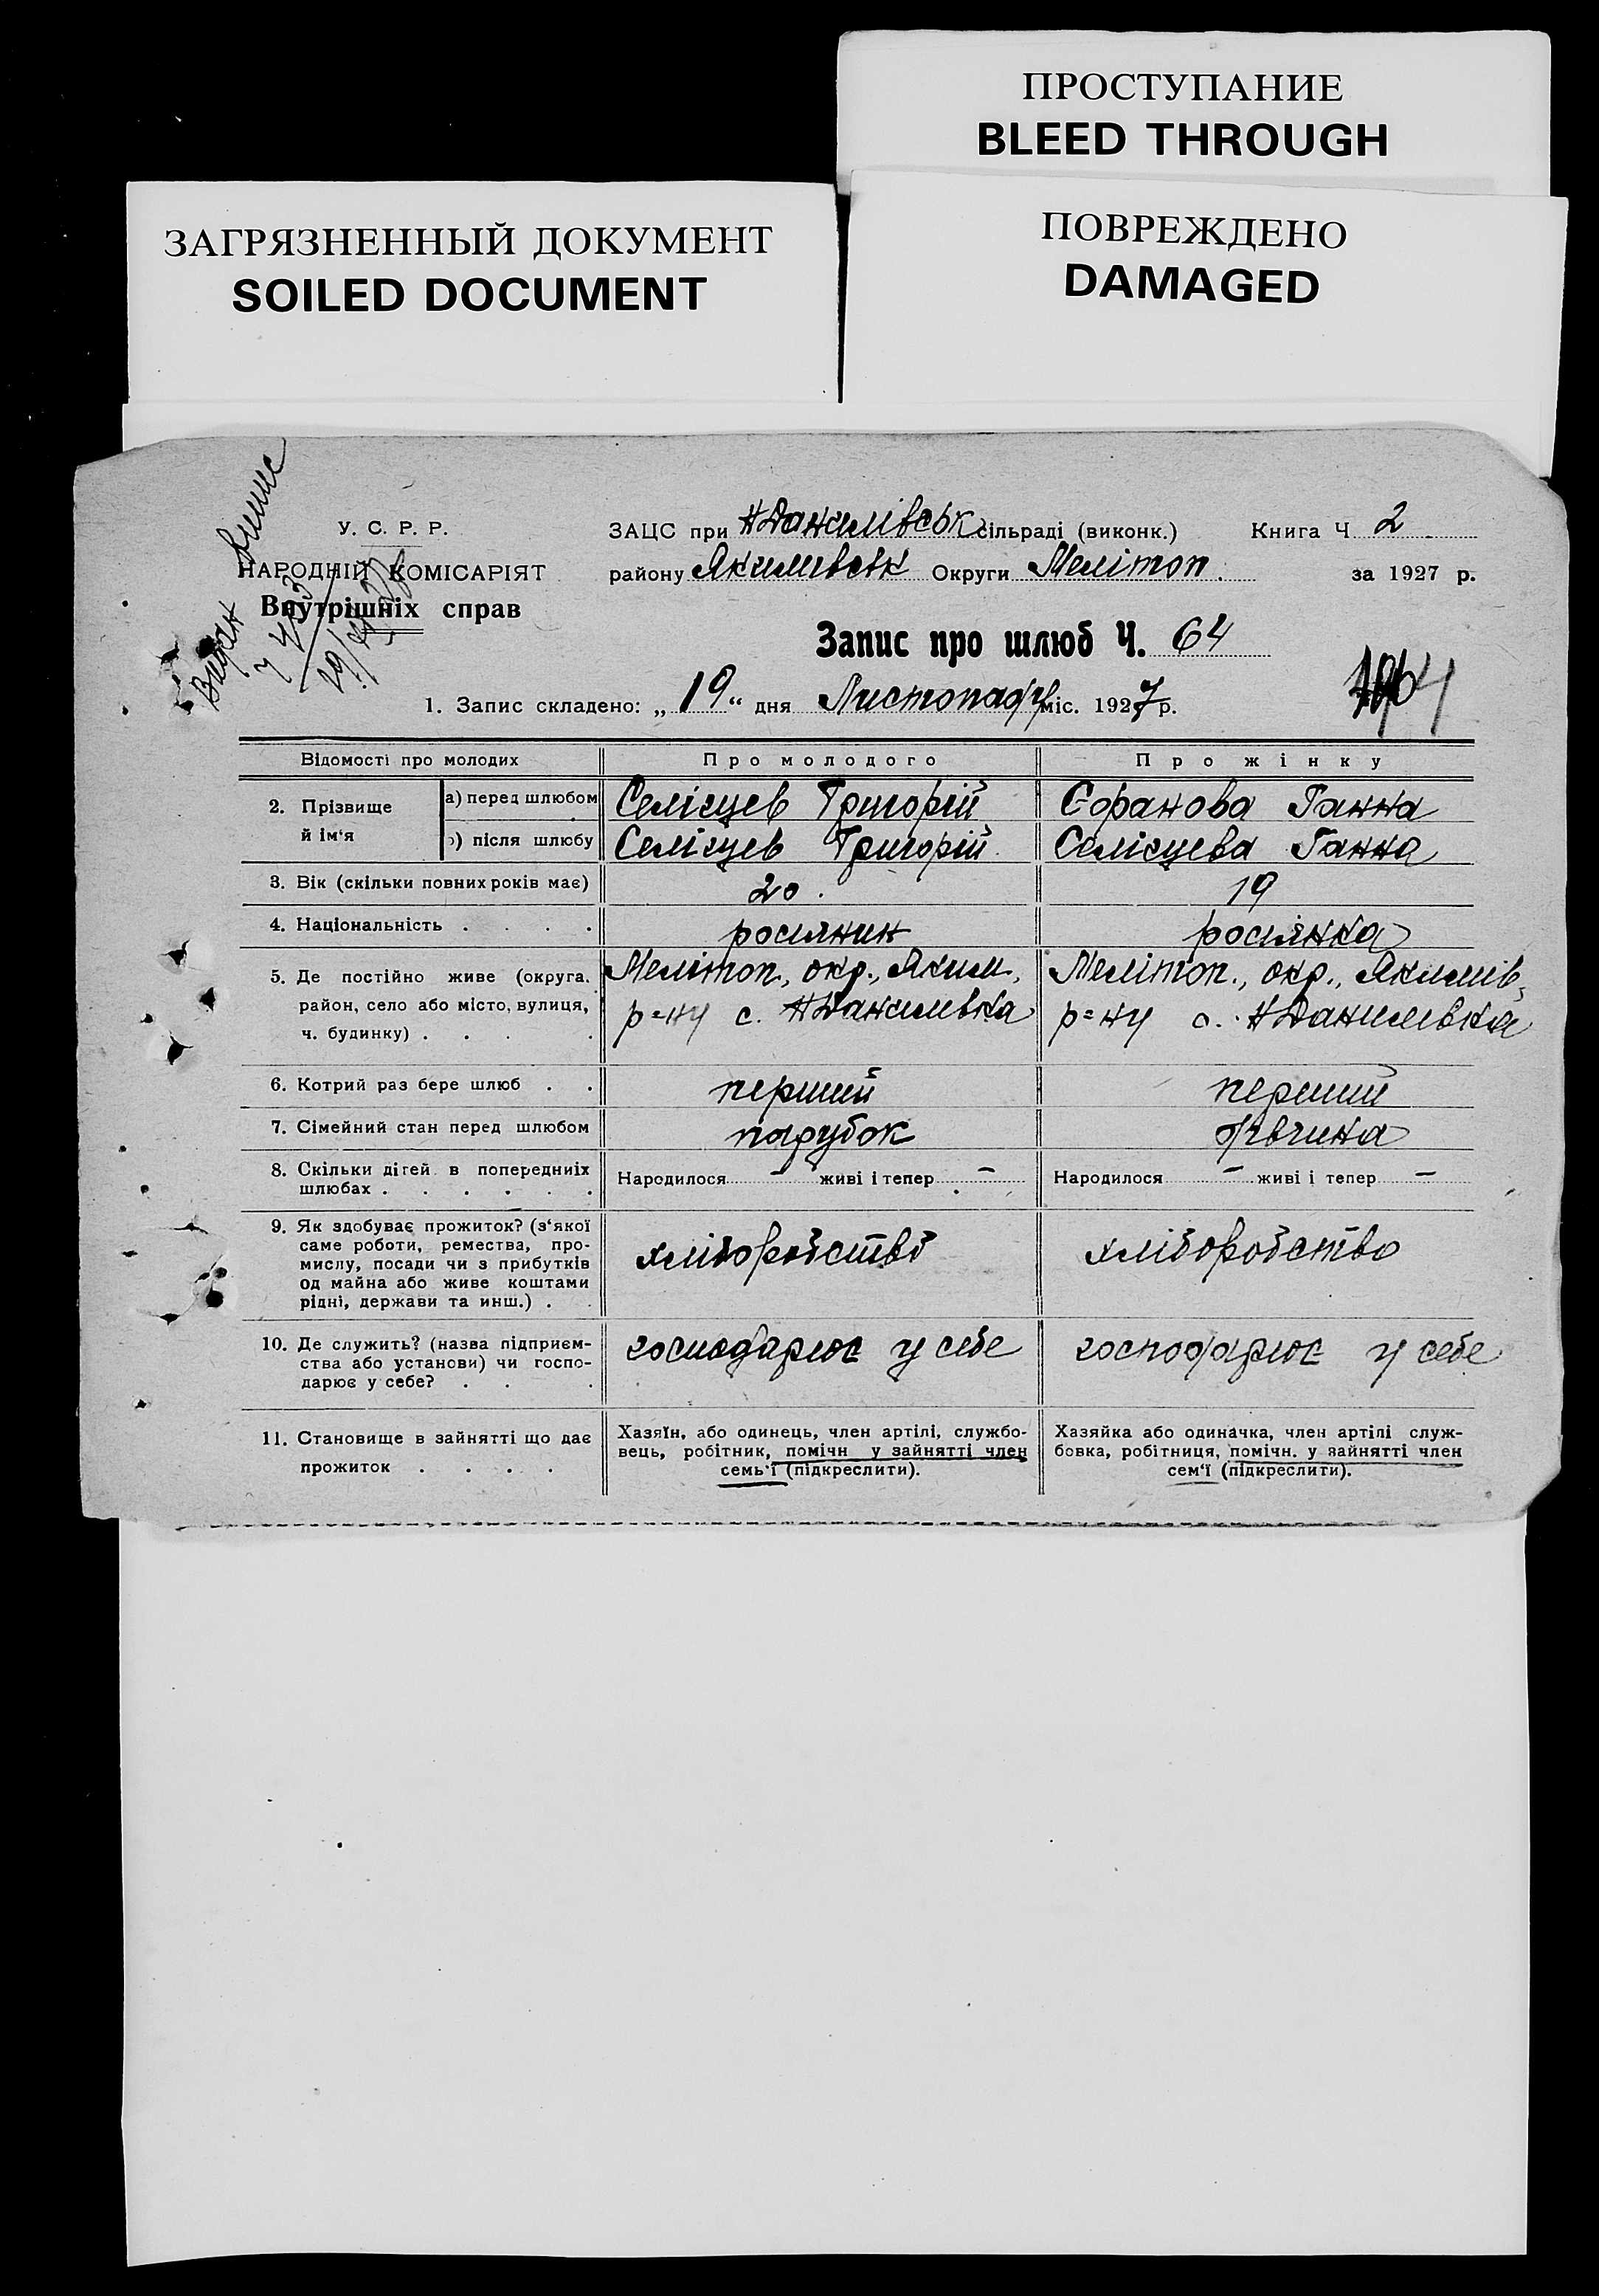 ПРОСТУПАНИЕ
BLEED THROUGH
ЗАГРЯЗНЕННЫЙ ДОКУМЕНТ
SOILED DOCUMENT
ПОВРЕЖДЕНО
DAMAGED
Видан
У. С. Р. Р.
НАРОДНІЙ КОМІСАРІЯТ
Внутрішніх справ
ЗАЦС при Н Данилівськ сільраді (виконк.) Книга Ч 2
району Якимівськ Округи Мелітоп. за 1927 р.
Запис про шлюб Ч. 64
1. Запис складено: „19“ дня Листопаду міс. 1927 р.
Відомості про молодих Про молодого Про жінку
2. Прізвище й ім‘я а) перед шлюбом Селісцев Григорій Софанова Ганна
б) після шлюбу Селісцев Григорій Селісцева Ганна
3. Вік (скільки повних років має) 20. 19
4. Національність . . . . росиянин росиянка
5. Де постійно живе (округа, Мелітоп., окр., Яким., Мелітоп., окр., Якимів.,
район, село або місто, вулиця, р=ну с. Н Данилівка р=ну с. Н Данилівка
ч. будинку) . . . .
6. Котрий раз бере шлюб . . перший перший
7. Сімейний стан перед шлюбом парубок дівчина
8. Скільки дітей в попередніх Народилося – живі і тепер – Народилося – живі і тепер –
шлюбах . . . . . .
9. Як здобуває прожиток? (з‘якої хліборобство хліборобство
саме роботи, ремества, про-
мислу, посади чи з прибутків
од майна або живе коштами
рідні, держави та инш.) . .
10. Де служить? (назва підприєм- господарює у себе господарює у себе
ства або установи) чи госпо-
дарює у себе? . . .
11. Становище в зайнятті що дає Хазяїн, або одинець, член артілі, службо- Хазяйка або одиначка, член артілі служ-
прожиток . . . . вець, робітник, помічн у зайнятті член бовка, робітниця, помічн. у зайнятті член
семь‘ї (підкреслити). сем‘ї (підкреслити).